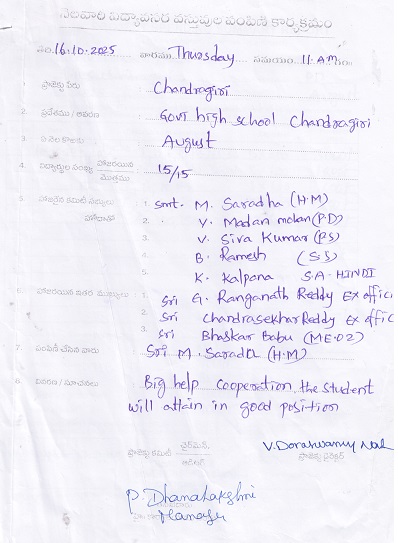 నెలవారి విద్యావసర వస్తువుల పంపిణీ కార్యక్రమం
16.10.2025 వారము Thursday సమయం 11 A.M
1. ప్రాజెక్టు పేరు Chandragiri
2. ప్రదేశము / వివరణ Govt high school Chandragiri
3. ఏ నెల కొరకు August
4. విద్యార్థుల సంఖ్య హాజరయిన 15/15
మొత్తము
5. కమిటీ సభ్యులు 1. Smt. M. Saradha (H.M)
2. V. Madan mohan (P.D)
3. V. Siva Kumar (P.S)
4. B. Ramesh (S.S)
5. K. Kalpana S.A-HINDI
6. హాజరయిన ఇతర ముఖ్యులు : 1. Sri G. Ranganath Reddy Ex offici
2. Sri Chandrasekhar Reddy Ex offic
3. Sri Bhaskar Babu (ME.02)
7. పంపిణీ చేసిన వారు Sri M. Sarada (H.M)
8. వివరణ / సూచనలు Big help cooperation the student
will attain in good position
V. Doraswamy
ప్రాజెక్టు కమిటీ చైర్‌మన్ ప్రాజెక్టు డైరెక్టర్
P. Dhanalakshmi
Manager